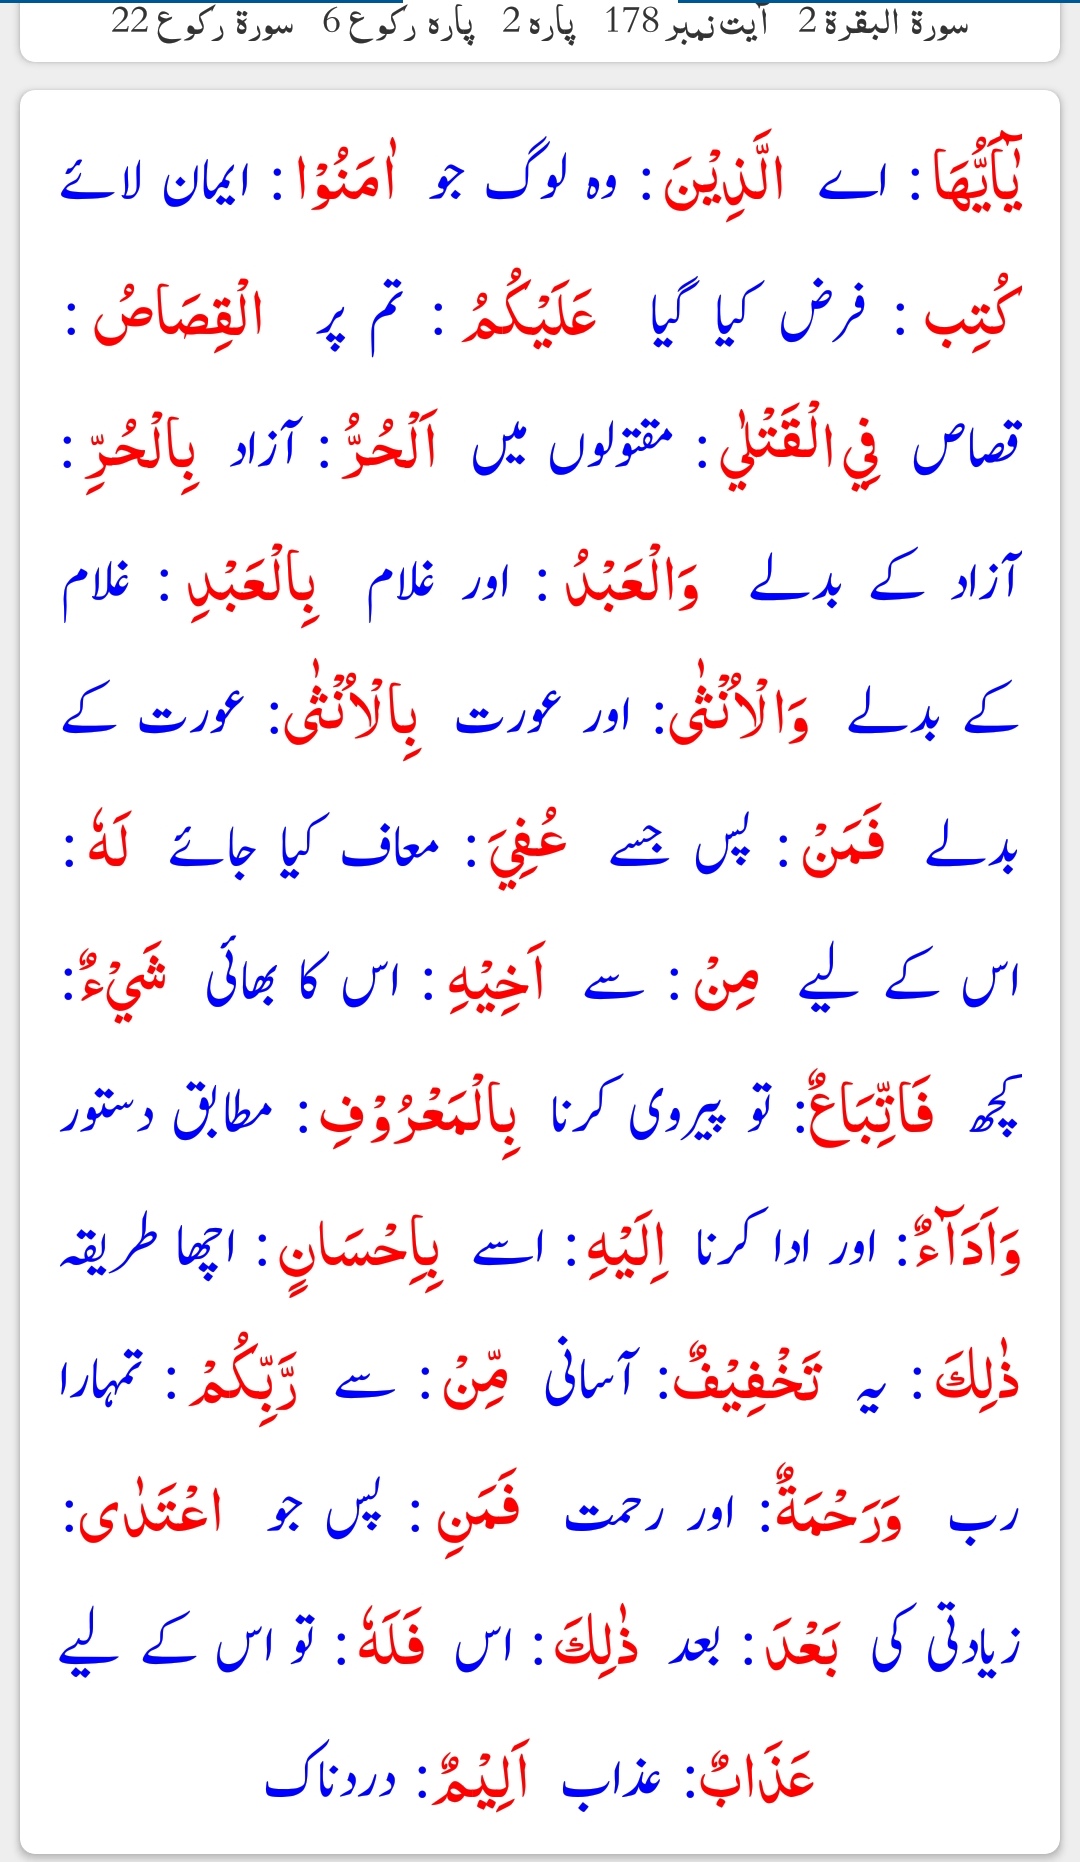 سورۃ البقرۃ 2 آیت نمبر 178 پارہ 2 پارہ رکوع 6 سورۃ رکوع 22
يٰٓاَيُّهَا : اے الَّذِيْنَ : وہ لوگ جو اٰمَنُوْا : ایمان لائے
كُتِب : فرض کیا گیا عَلَيْكُمُ : تم پر الْقِصَاصُ :
قصاص فِي الْقَتْلٰي : مقتولوں میں اَلْحُرُّ : آزاد بِالْحُرِّ :
آزاد کے بدلے وَالْعَبْدُ : اور غلام بِالْعَبْدِ : غلام
کے بدلے وَالْاُنْثٰى : اور عورت بِالْاُنْثٰى : عورت کے
بدلے فَمَنْ : پس جسے عُفِيَ : معاف کیا جائے لَهٗ :
اس کے لیے مِنْ : سے اَخِيْهِ : اس کا بھائی شَيْءٌ :
کچھ فَاتِّبَاعٌ : تو پیروی کرنا بِالْمَعْرُوْفِ : مطابق دستور
وَاَدَآءٌ : اور ادا کرنا اِلَيْهِ : اسے بِاِحْسَانٍ : اچھا طریقہ
ذٰلِكَ : یہ تَخْفِيْفٌ : آسانی مِّنْ : سے رَّبِّكُمْ : تمہارا
رب وَرَحْمَةٌ : اور رحمت فَمَنِ : پس جو اعْتَدٰى :
زیادتی کی بَعْدَ : بعد ذٰلِكَ : اس فَلَهٗ : تو اس کے لیے
عَذَابٌ : عذاب اَلِيْمٌ : دردناک